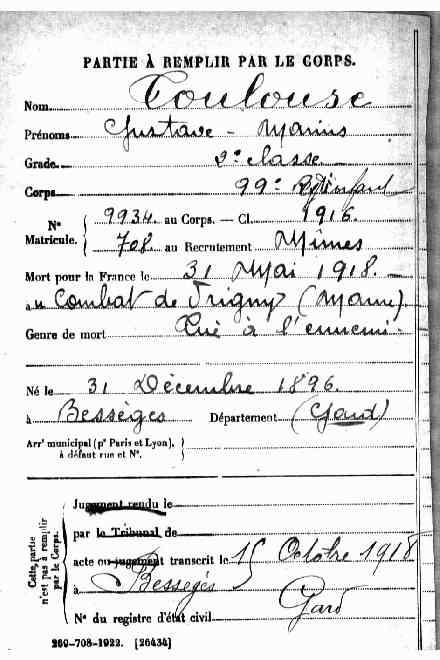 PARTIE À REMPLIR PAR LE CORPS.
Nom Toulouse
Prénoms Gustave - Marius
Grade 2e classe
Corps 99e Rgt Infant
N° Matricule. 9934 au Corps. — Cl. 1916.
708 au Recrutement Nîmes
Mort pour la France le 31 Mai 1918.
au Combat de Trigny (Marne)
Genre de mort Tué à l'ennemi.
Né le 31 Décembre 1896.
à Bessèges Département (Gard)
Arrt municipal (pr Paris et Lyon),
à défaut rue et N°.
Cette partie n'est pas à remplir par le Corps.
Jugement rendu le
par le Tribunal de
acte ou jugement transcrit le 15 Octobre 1918
à Bessèges Gard
N° du registre d'état civil
269-708-1922. [26434]